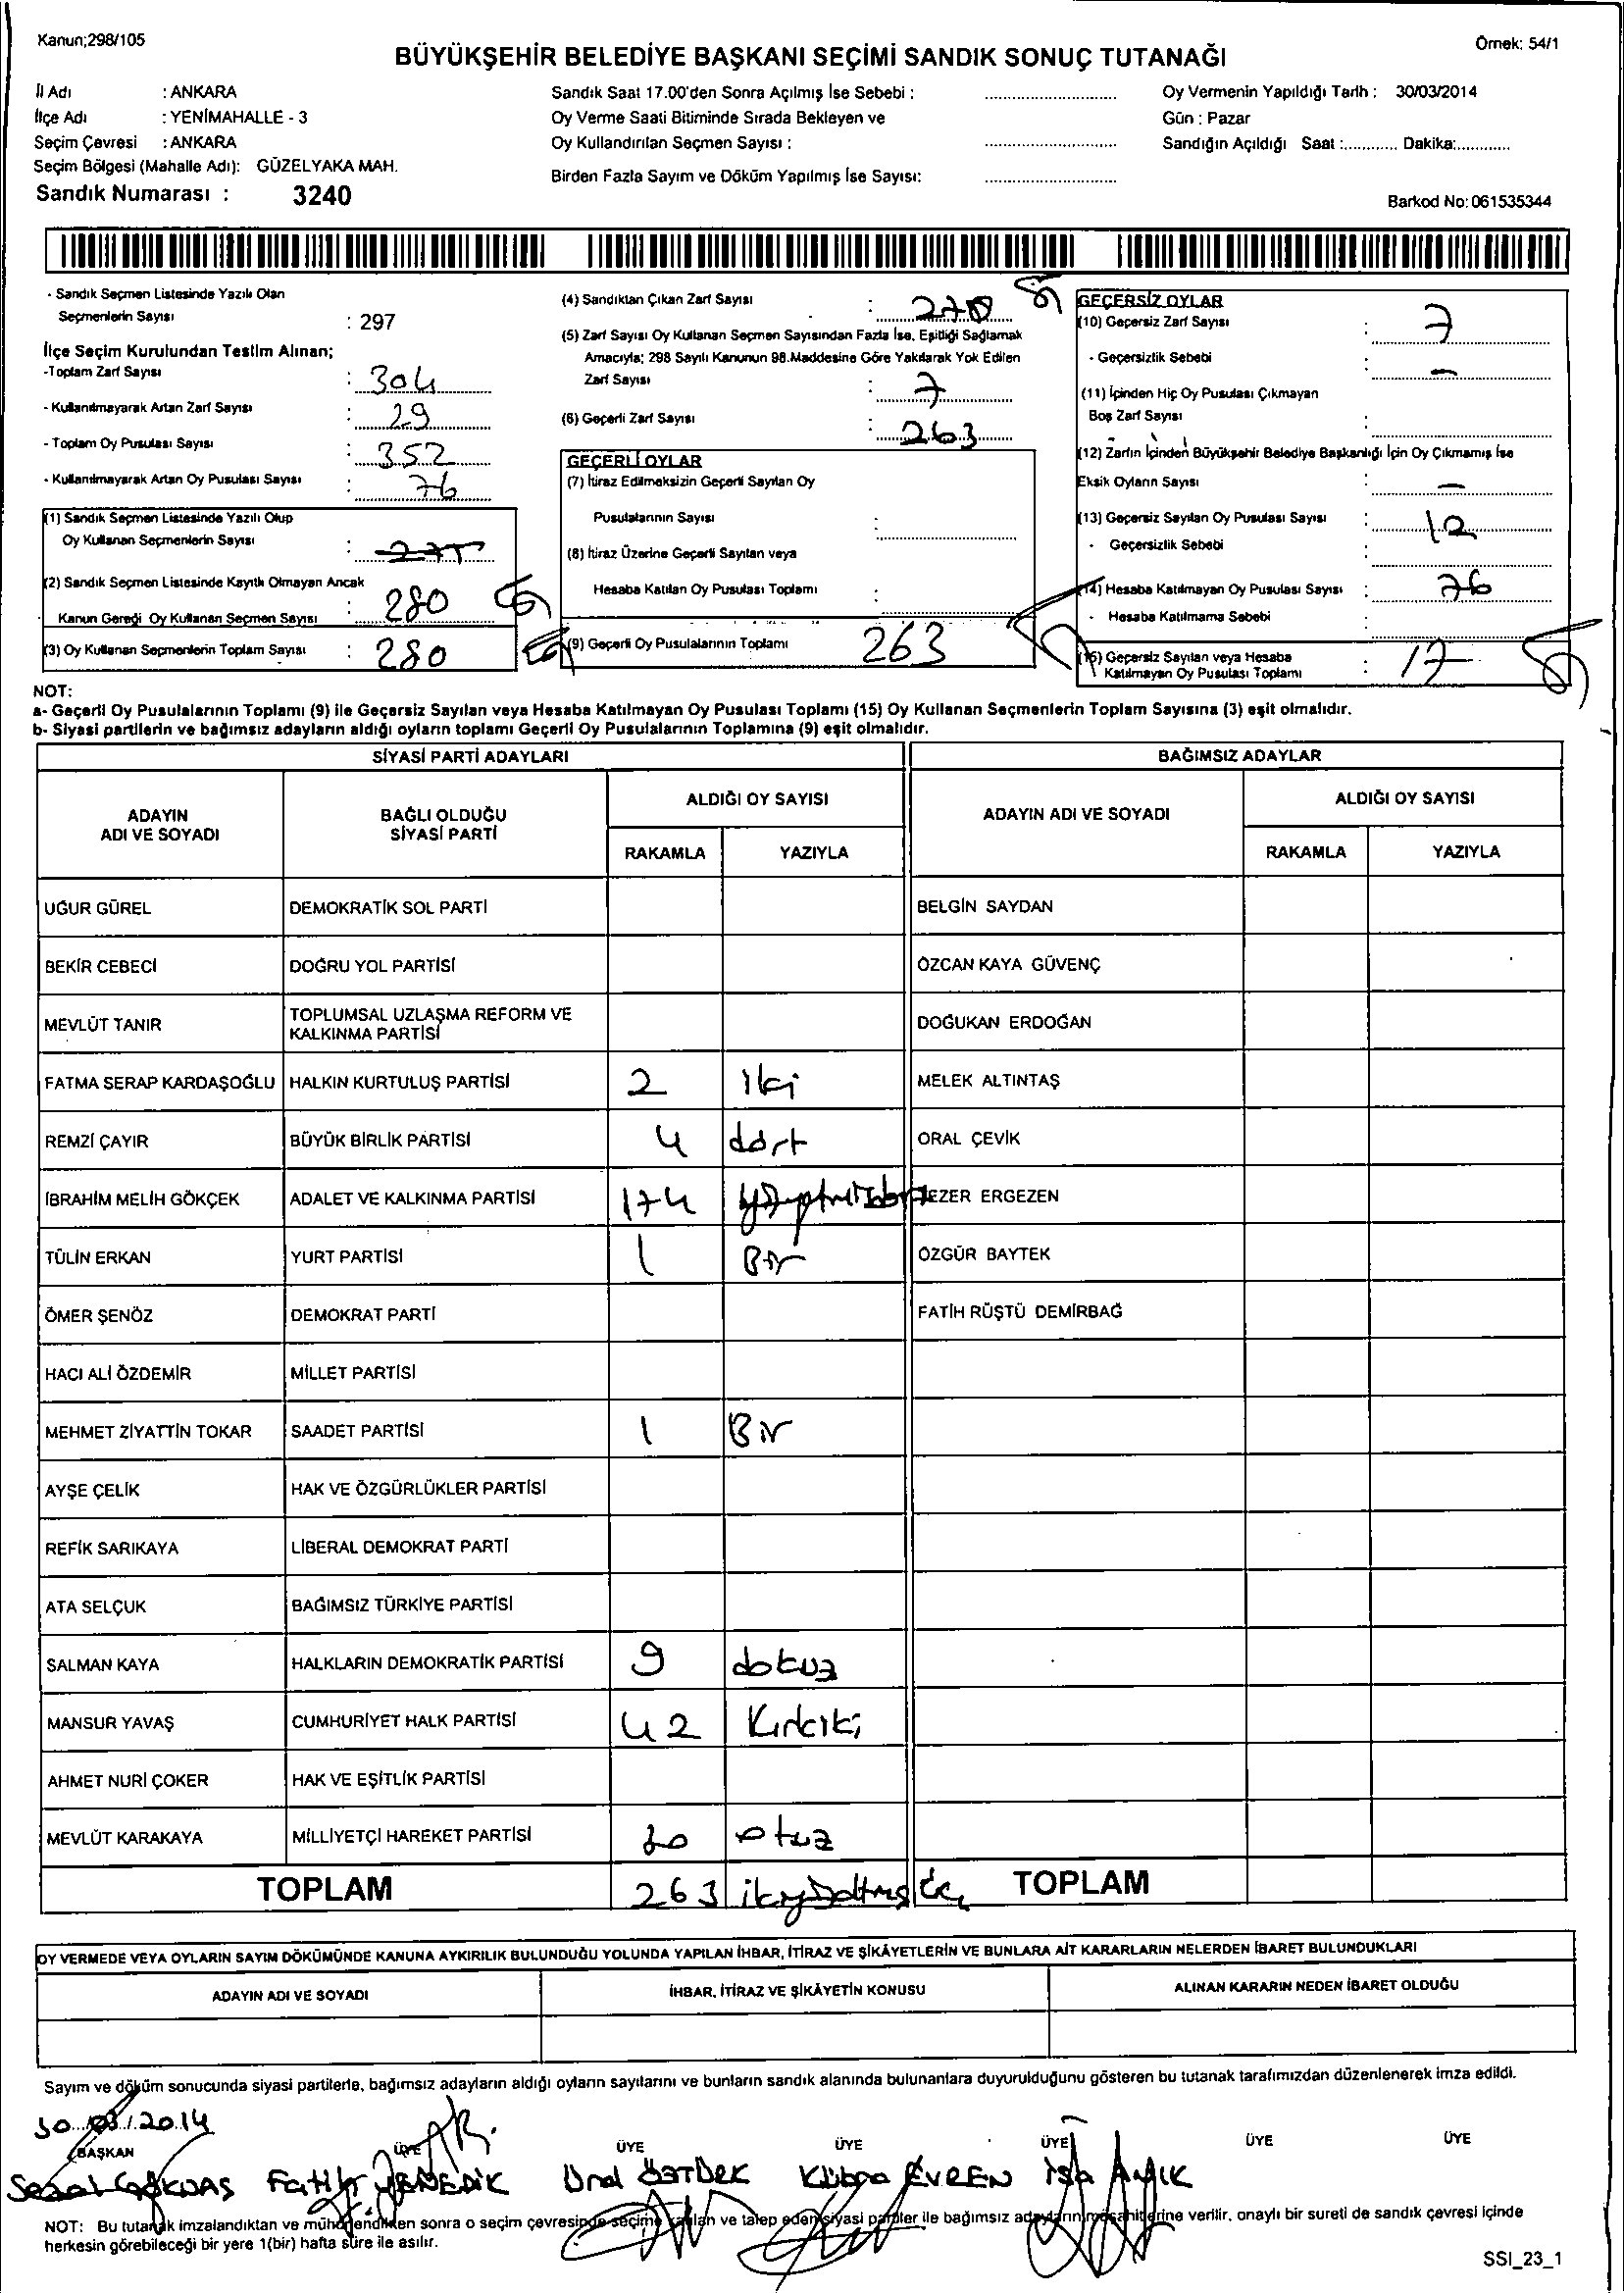 Kanun;298/105
Örnek: 54/1
BÜYÜKŞEHİR BELEDİYE BAŞKANI SEÇİMİ SANDIK SONUÇ TUTANAĞI
İl Adı : ANKARA
İlçe Adı : YENİMAHALLE - 3
Seçim Çevresi : ANKARA
Seçim Bölgesi (Mahalle Adı): GÜZELYAKA MAH.
Sandık Numarası : 3240
Sandık Saat 17.00'den Sonra Açılmış İse Sebebi :
Oy Verme Saati Bitiminde Sırada Bekleyen ve
Oy Kullandırılan Seçmen Sayısı :
Birden Fazla Sayım ve Döküm Yapılmış İse Sayısı:
Oy Vermenin Yapıldığı Tarih : 30/03/2014
Gün : Pazar
Sandığın Açıldığı Saat :............ Dakika:............
Barkod No: 061535344
- Sandık Seçmen Listesinde Yazılı Olan
Seçmenlerin Sayısı : 297
İlçe Seçim Kurulundan Teslim Alınan;
-Toplam Zarf Sayısı : 304
- Kullanılmayarak Artan Zarf Sayısı : 29
- Toplam Oy Pusulası Sayısı : 352
- Kullanılmayarak Artan Oy Pusulası Sayısı : 76
(1) Sandık Seçmen Listesinde Yazılı Olup
Oy Kullanan Seçmenlerin Sayısı : 275
(2) Sandık Seçmen Listesinde Kayıtlı Olmayan Ancak
Kanun Gereği Oy Kullanan Seçmen Sayısı : 280
(3) Oy Kullanan Seçmenlerin Toplam Sayısı : 280
(4) Sandıktan Çıkan Zarf Sayısı : 270
(5) Zarf Sayısı Oy Kullanan Seçmen Sayısından Fazla İse, Eşitliği Sağlamak
Amacıyla; 298 Sayılı Kanunun 98.Maddesine Göre Yakılarak Yok Edilen
Zarf Sayısı : 7
(6) Geçerli Zarf Sayısı : 263
GEÇERLİ OYLAR
(7) İtiraz Edilmeksizin Geçerli Sayılan Oy
Pusulalarının Sayısı :
(8) İtiraz Üzerine Geçerli Sayılan veya
Hesaba Katılan Oy Pusulası Toplamı :
(9) Geçerli Oy Pusulalarının Toplamı 263
GEÇERSİZ OYLAR
(10) Geçersiz Zarf Sayısı : 7
- Geçersizlik Sebebi : -
(11) İçinden Hiç Oy Pusulası Çıkmayan
Boş Zarf Sayısı :
(12) Zarfın İçinden Büyükşehir Belediye Başkanlığı İçin Oy Çıkmamış İse
Eksik Oyların Sayısı : -
(13) Geçersiz Sayılan Oy Pusulası Sayısı : 12
- Geçersizlik Sebebi :
(14) Hesaba Katılmayan Oy Pusulası Sayısı : 76
- Hesaba Katılmama Sebebi :
(15) Geçersiz Sayılan veya Hesaba
Katılmayan Oy Pusulası Toplamı : 17
NOT:
a- Geçerli Oy Pusulalarının Toplamı (9) ile Geçersiz Sayılan veya Hesaba Katılmayan Oy Pusulası Toplamı (15) Oy Kullanan Seçmenlerin Toplam Sayısına (3) eşit olmalıdır.
b- Siyasi partilerin ve bağımsız adayların aldığı oyların toplamı Geçerli Oy Pusulalarının Toplamına (9) eşit olmalıdır.
SİYASİ PARTİ ADAYLARI BAĞIMSIZ ADAYLAR
ADAYIN ADI VE SOYADI BAĞLI OLDUĞU SİYASİ PARTİ ALDIĞI OY SAYISI ADAYIN ADI VE SOYADI ALDIĞI OY SAYISI
RAKAMLA YAZIYLA RAKAMLA YAZIYLA
UĞUR GÜREL DEMOKRATİK SOL PARTİ BELGİN SAYDAN
BEKİR CEBECİ DOĞRU YOL PARTİSİ ÖZCAN KAYA GÜVENÇ
MEVLÜT TANIR TOPLUMSAL UZLAŞMA REFORM VE KALKINMA PARTİSİ DOĞUKAN ERDOĞAN
FATMA SERAP KARDAŞOĞLU HALKIN KURTULUŞ PARTİSİ 2 iki MELEK ALTINTAŞ
REMZİ ÇAYIR BÜYÜK BİRLİK PARTİSİ 4 dört ORAL ÇEVİK
İBRAHİM MELİH GÖKÇEK ADALET VE KALKINMA PARTİSİ 174 EZER ERGEZEN
TÜLİN ERKAN YURT PARTİSİ 1 Bir ÖZGÜR BAYTEK
ÖMER ŞENÖZ DEMOKRAT PARTİ FATİH RÜŞTÜ DEMİRBAĞ
HACI ALİ ÖZDEMİR MİLLET PARTİSİ
MEHMET ZİYATTİN TOKAR SAADET PARTİSİ 1 Bir
AYŞE ÇELİK HAK VE ÖZGÜRLÜKLER PARTİSİ
REFİK SARIKAYA LİBERAL DEMOKRAT PARTİ
ATA SELÇUK BAĞIMSIZ TÜRKİYE PARTİSİ
SALMAN KAYA HALKLARIN DEMOKRATİK PARTİSİ 9 dokuz
MANSUR YAVAŞ CUMHURİYET HALK PARTİSİ 42 Kırkiki
AHMET NURİ ÇOKER HAK VE EŞİTLİK PARTİSİ
MEVLÜT KARAKAYA MİLLİYETÇİ HAREKET PARTİSİ 30 otuz
TOPLAM 263 ikiyüzaltmışüç TOPLAM
OY VERMEDE VEYA OYLARIN SAYIM DÖKÜMÜNDE KANUNA AYKIRILIK BULUNDUĞU YOLUNDA YAPILAN İHBAR, İTİRAZ VE ŞİKÂYETLERİN VE BUNLARA AİT KARARLARIN NELERDEN İBARET BULUNDUKLARI
ADAYIN ADI VE SOYADI İHBAR, İTİRAZ VE ŞİKÂYETİN KONUSU ALINAN KARARIN NEDEN İBARET OLDUĞU
Sayım ve döküm sonucunda siyasi partilerle, bağımsız adayların aldığı oyların sayılarını ve bunların sandık alanında bulunanlara duyurulduğunu gösteren bu tutanak tarafımızdan düzenlenerek imza edildi.
30/03/2014
BAŞKAN ÜYE ÜYE ÜYE ÜYE ÜYE ÜYE
Fatih Ünal ÖZTÜRK Kübra EVREN İsa
NOT: Bu tutanak imzalandıktan ve mühürlendikten sonra o seçim çevresinde seçime katılan ve talep eden siyasi partiler ile bağımsız adayların müşahitlerine verilir, onaylı bir sureti de sandık çevresi içinde
herkesin görebileceği bir yere 1(bir) hafta süre ile asılır.
SSI_23_1